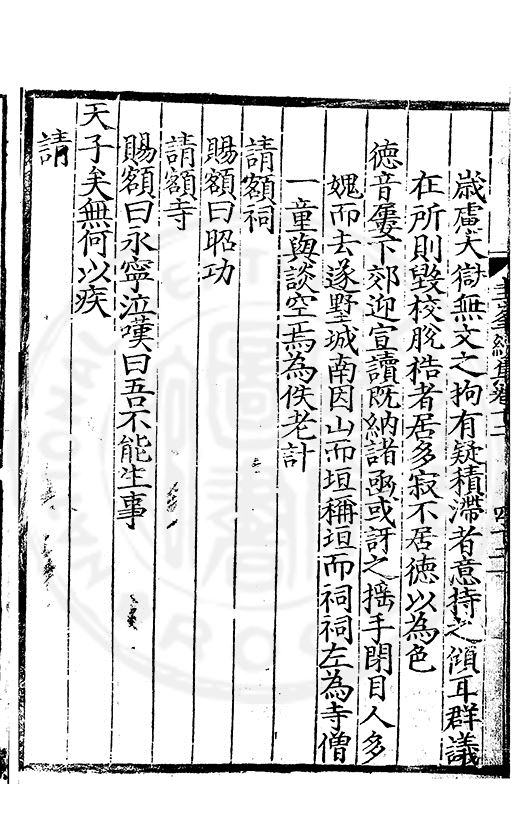 歲慮犬獄無文之拘有疑積滯者意持之傾耳群議
在所則毀校脫梏者居多寂不居徳以為色
徳音屢下郊迎宣讀既納諸函或訝之揺手閉目人多
媿而去遂墅城南因山而垣稱垣而祠祠左為寺僧
一童與談空焉為佚老計
請額祠
賜額曰昭功
請額寺
賜額曰永寧泣嘆曰吾不能生事
天子矣無何以疾
請